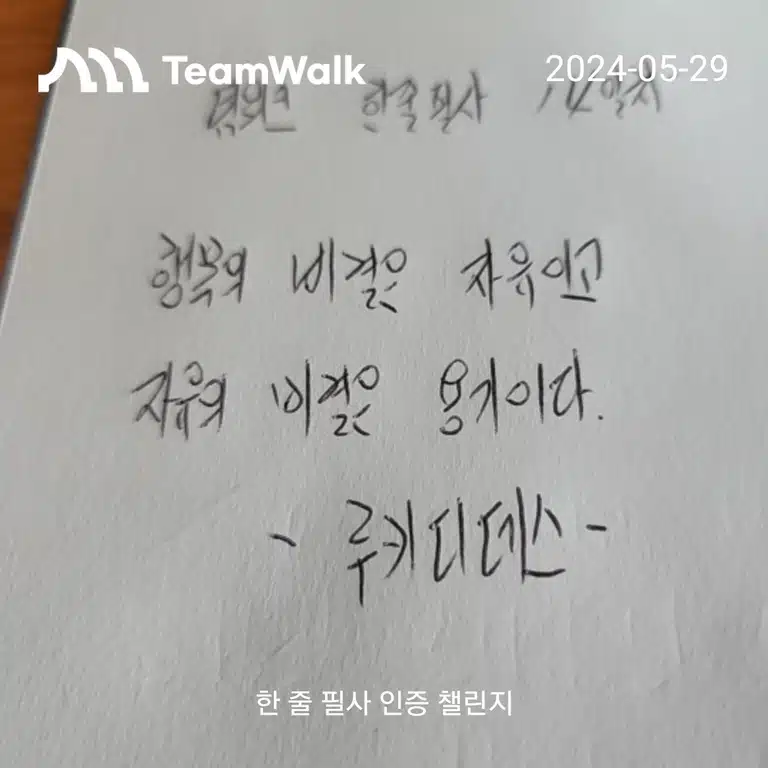 TeamWalk 2024-05-29
한줄필사 14일차
행복의 비결은 자유이고
자유의 비결은 용기이다.
- 루키디데스 -
한 줄 필사 인증 챌린지